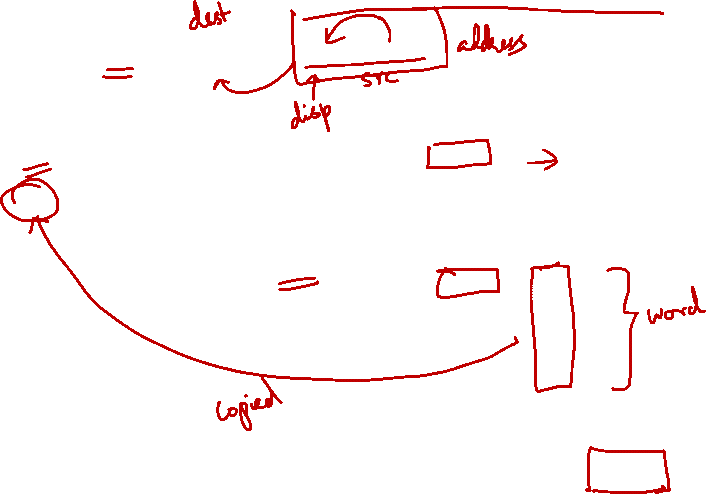 dest
address
src
disp
word
copied